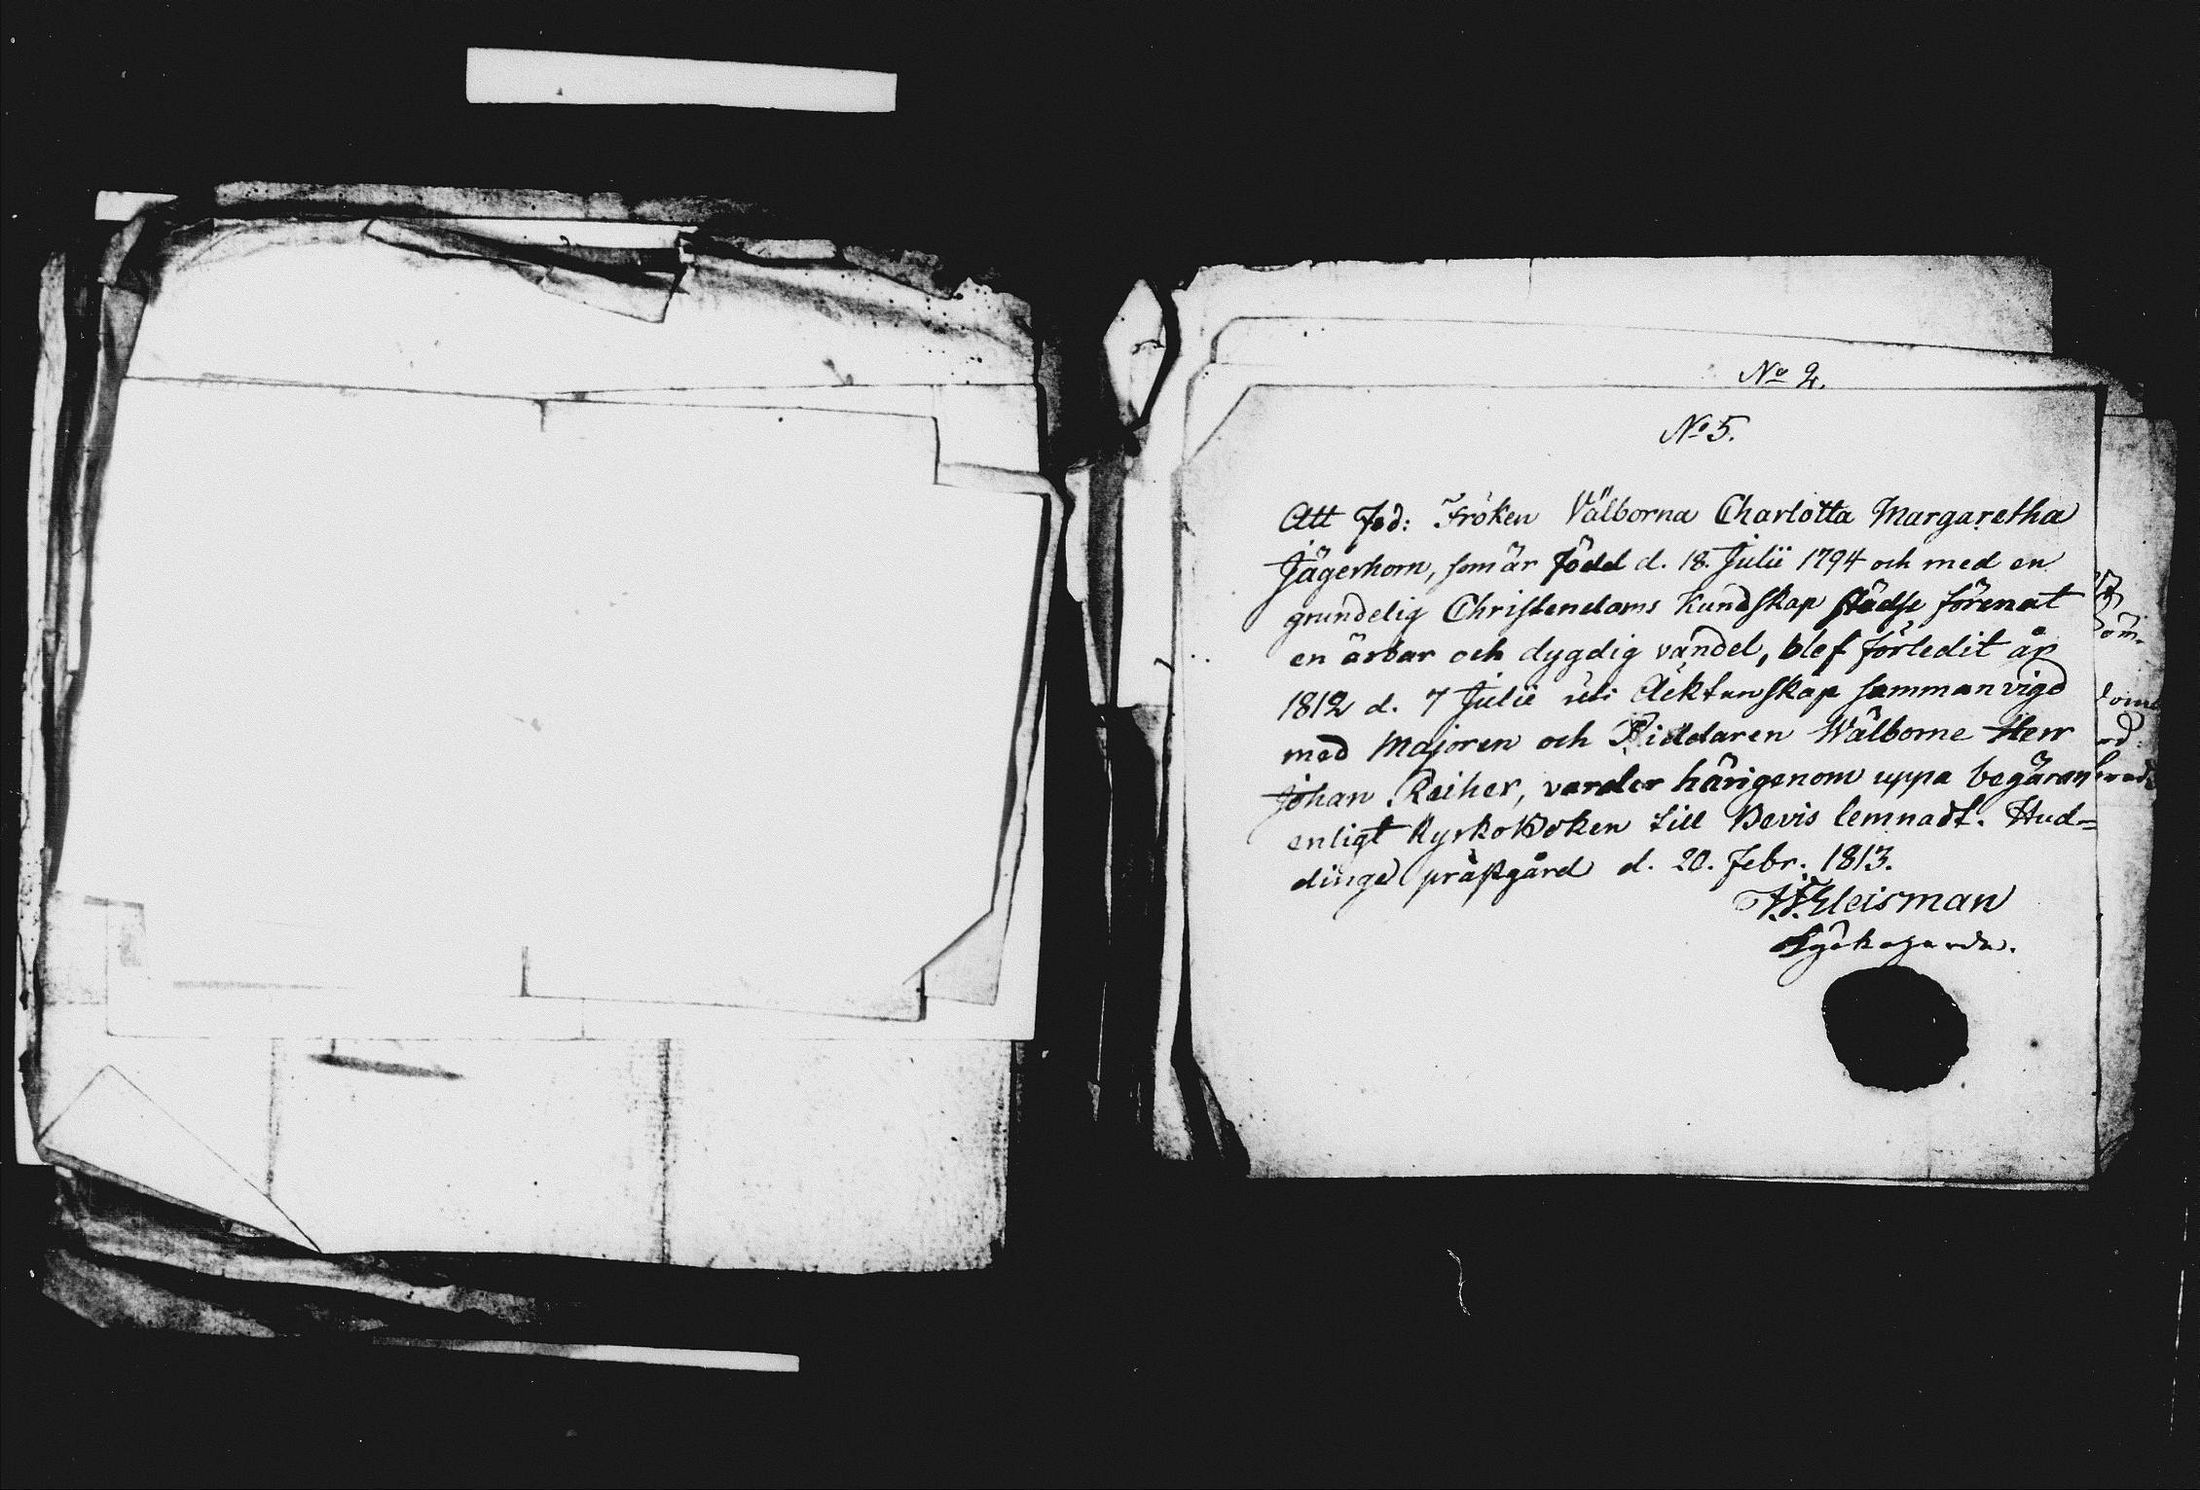 No 2.
No 5.
Att Fröken Välborna Charlotta Margaretha
Jägerhorn, som är född d. 18. Julii 1794 och med en
grundelig Christendoms Kundskap städse förenat
en ärbar och dygdig vandel, blef förledit år
1812 d. 7 Julii uti Äcktenskap sammanvigd
med Majoren och Riddaren Wälborne Herr
Johan Reiher, varder härigenom uppa begäran
enligt KyrkoBoken till Bevis lemnadt. Hud=
dinge prästgård d. 20. Febr. 1813.